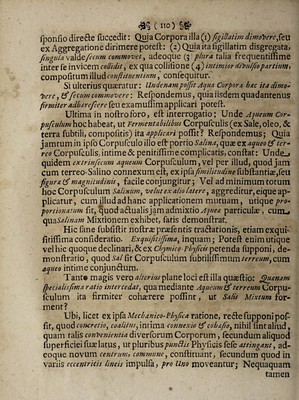 (110)
sponsio directe succedit: Quia Corpora illa (1) sigillatim dimovere, seu
ex Aggregatione dirimere potest: (2) Quia ita sigillatim disgregata,
singula valde secum commovet, adeoque (3) plura talia frequentissime
inter se invicem collidit, ex qua colisione (4) intimior divulsio partium,
compositum illud constituentium, consequitur.
Si ulterius quæratur: Undenam possit Aqua Corpora hæc ita dimo-
vere, & secum commovere: Respondemus, quia iisdem quadantenus
firmiter adhærescere seu examussim applicari potest.
Ultima in nostro foro, est interrogatio: Unde Aqueum Cor-
pusculum hoc habeat, ut Fermentabilibus Corpusculis (ex Sale, oleo, &
terra subtili, compositis) ita applicari possit? Respondemus; Quia
jamtum in ipso Corpusculo illo est portio Salina, quæ ex aqueo & ter-
reo Corpusculis, intime & penitissime complicatis, constat: Unde
quidem extrinsecum aqueum Corpusculum, vel per illud, quod jam
cum terreo-Salino connexum est, ex ipsa similitudine substantiæ, seu
figuræ & magnitudinis, facile conjungitur; Vel ad minimum totum
hoc Corpusculum Salinum, velut ex alio latere, aggreditur, eique ap-
plicatur, cum illud ad hanc applicationem mutuam, utique pro-
portionatum sit, quod actualis jam admixtio Aqueæ particulæ, cum
qua Salinum Mixtionem exhibet, satis demonstrat.
Hic sane subsistit nostræ præsentis tractationis, etiam exqui-
sitissima consideratio. Exquisitissima, inquam; Potest enim utique
vel hic quoque declinari, & ex Chymico Physicis potenda supponi, de-
monstratio, quod Sal sit Corpusculum subtilissimum terreum, cum
aqueo intime conjunctum.
Tanto magis vero alterius plane loci est illa quæstio: Quænam
specialissima ratio intercedat, qua mediante Aqueum & terreum Corpu-
sculum ita firmiter cohærere possint, ut Salis Mixtum for-
ment?
Ubi, licet ex ipsa Mechanico-Physica ratione, recte supponi pos-
sit, quod concretio, coalitus, intima connexio & cohæsio, nihil sint aliud,
quam talis convenientia diversorum Corporum, secundum aliquod
superficiei suæ latus, ut pluribus punctis Physicis sese attingant, ad-
eoque novum centrum, commune, constituant, secundum quod in
variis eccentricis lineis impulsa, pro Uno moveantur; Nequaquam
tamen